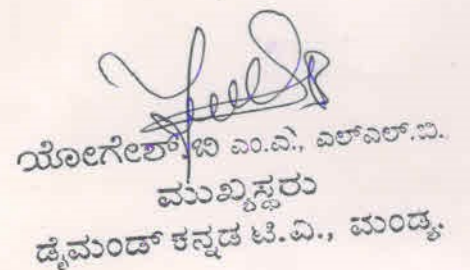 ಯೋಗೇಶ್.ಬಿ ಎಂ.ಎ., ಎಲ್ಎಲ್.ಬಿ.
ಮುಖ್ಯಸ್ಥರು
ಡೈಮಂಡ್ ಕನ್ನಡ ಟಿ.ವಿ., ಮಂಡ್ಯ.